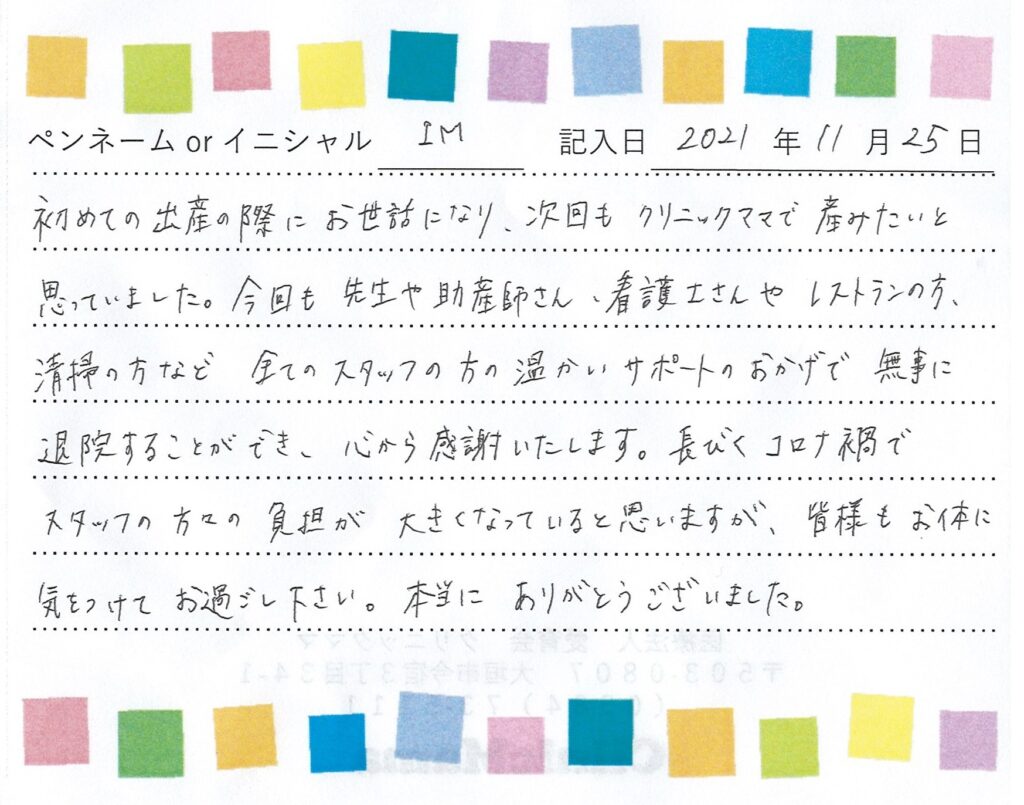 ペンネーム or イニシャル IM 記入日 2021 年 11 月 25 日
初めての出産の際にお世話になり、次回もクリニックママで産みたいと
思っていました。今回も先生や助産師さん、看護士さんやレストランの方、
清掃の方など全てのスタッフの方の温かいサポートのおかげで無事に
退院することができ、心から感謝いたします。長びくコロナ禍で
スタッフの方々の負担が大きくなっていると思いますが、皆様もお体に
気をつけてお過ごし下さい。本当にありがとうございました。
医療法人 愛育会 クリニックママ
〒503-0807 大垣市今宿3丁目34-1